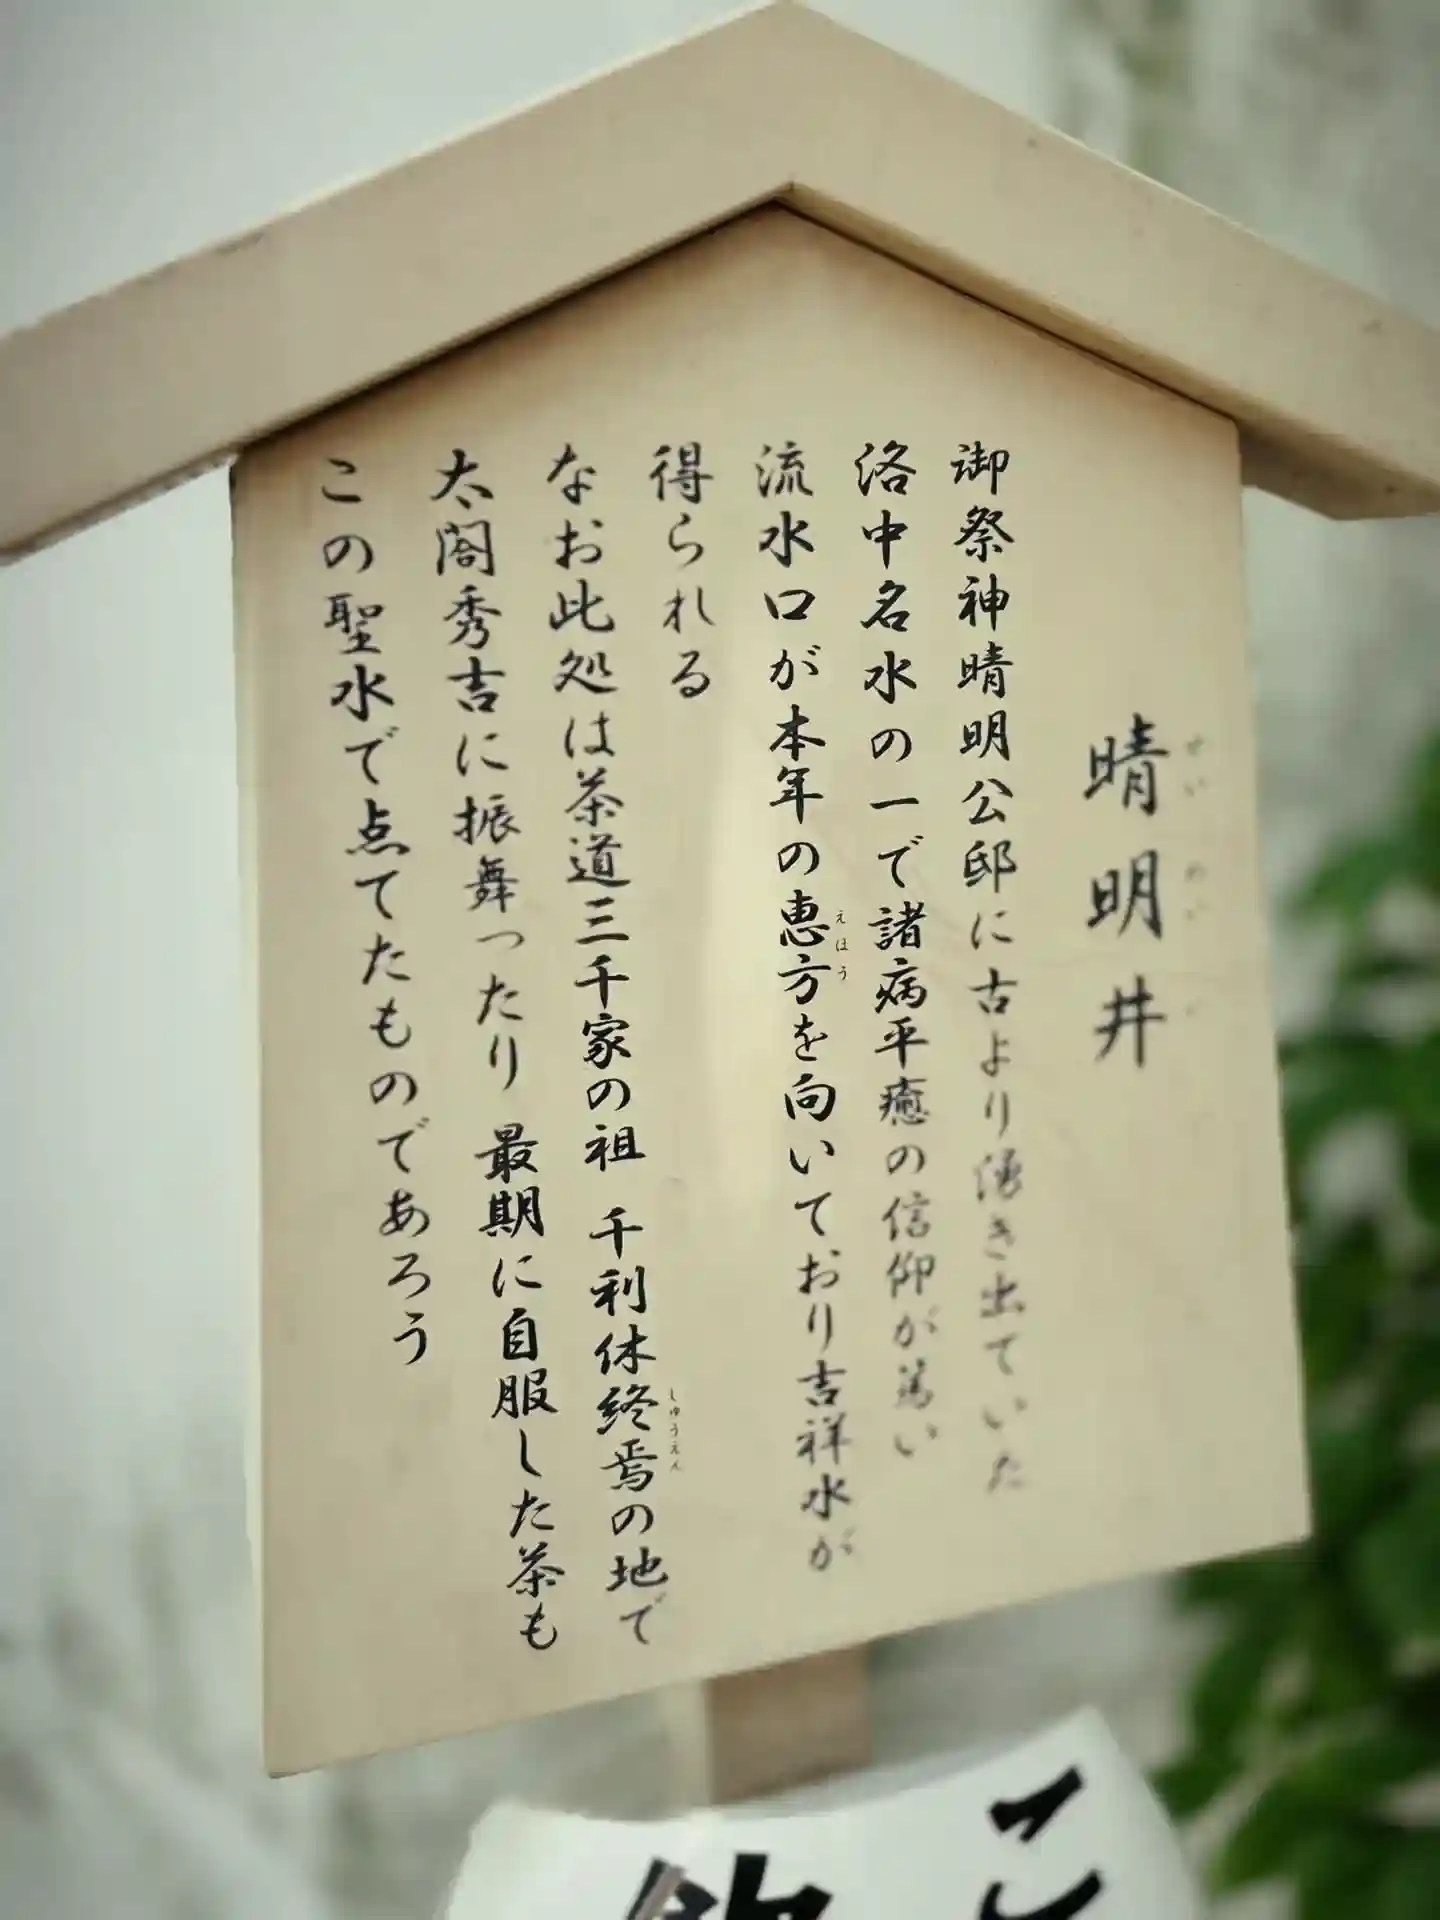 晴明井
せいめい
御祭神晴明公邸に古より湧き出ていた
洛中名水の一で諸病平癒の信仰が篤い
流水口が本年の恵方を向いており吉祥水が
えほう
得られる
なお此処は茶道三千家の祖 千利休終焉の地で
しゅうえん
太閤秀吉に振舞ったり 最期に自服した茶も
この聖水で点てたものであろう
こ